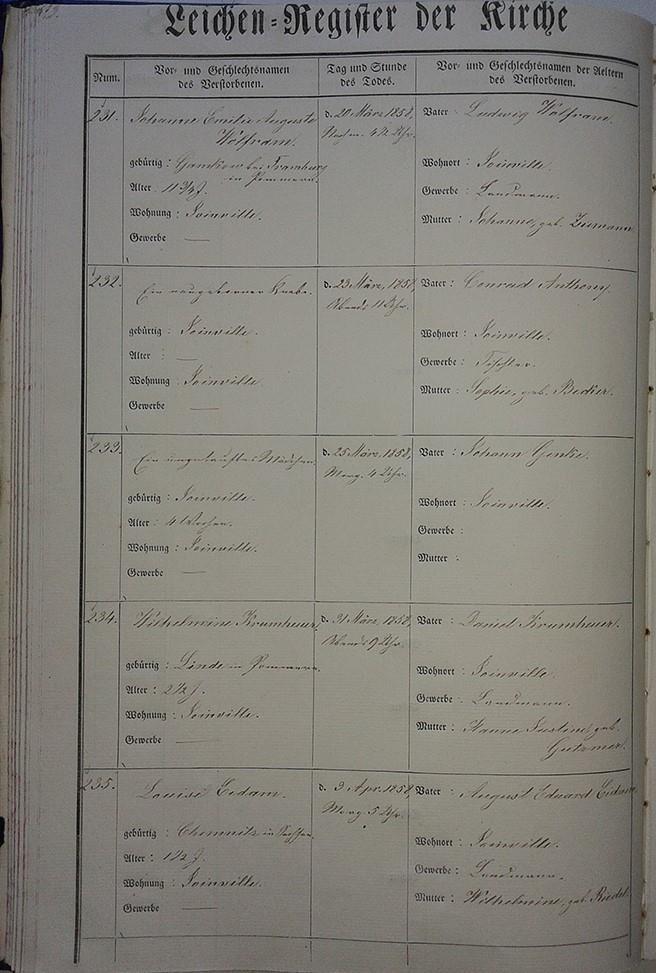 Leichen-Register der Kirche
Num.
Vor- und Geschlechtsnamen
des Verstorbenen.
Tag und Stunde
des Todes.
Vor- und Geschlechtsnamen der Aeltern
des Verstorbenen.
231.
Johanne Emilie Auguste
Wolfram.
gebürtig : bei
in Pommern.
Alter : 11 3/4 J.
Wohnung : Joinville.
Gewerbe —
d. 20 März, 1858,
Nachm. 4 1/2 Uhr.
Vater : Ludwig Wolfram.
Wohnort : Joinville.
Gewerbe : Landmann.
Mutter : Johanne, geb. Zumann
232.
Ein neugeborner Knabe.
gebürtig : Joinville.
Alter : —
Wohnung : Joinville
Gewerbe —
d. 23 März, 1858,
Abends 11 Uhr.
Vater : Conrad Anthony.
Wohnort : Joinville.
Gewerbe : Tischler.
Mutter : Sophie, geb.
233.
Ein ungetauftes Mädchen.
gebürtig : Joinville.
Alter : 4 Wochen.
Wohnung : Joinville.
Gewerbe —
d. 25 März, 1858,
Morg. 4 Uhr.
Vater : Johann
Wohnort : Joinville.
Gewerbe :
Mutter :
234.
Wilhelmine Krumheuer.
gebürtig : Linde in Pommern.
Alter : 2 1/2 J.
Wohnung : Joinville.
Gewerbe —
d. 31 März, 1858,
Abends 9 Uhr.
Vater : Daniel Krumheuer.
Wohnort : Joinville.
Gewerbe : Landmann.
Mutter : Hanne Justine, geb.
Gutzmer.
235.
Louise Eidam.
gebürtig : Chemnitz in Sachsen.
Alter : 1 1/2 J.
Wohnung : Joinville.
Gewerbe —
d. 3 Apr. 1858,
Morg. 5 Uhr.
Vater : August Eduard Eidam
Wohnort : Joinville.
Gewerbe : Landmann.
Mutter : Wilhelmine, geb. Riedel.